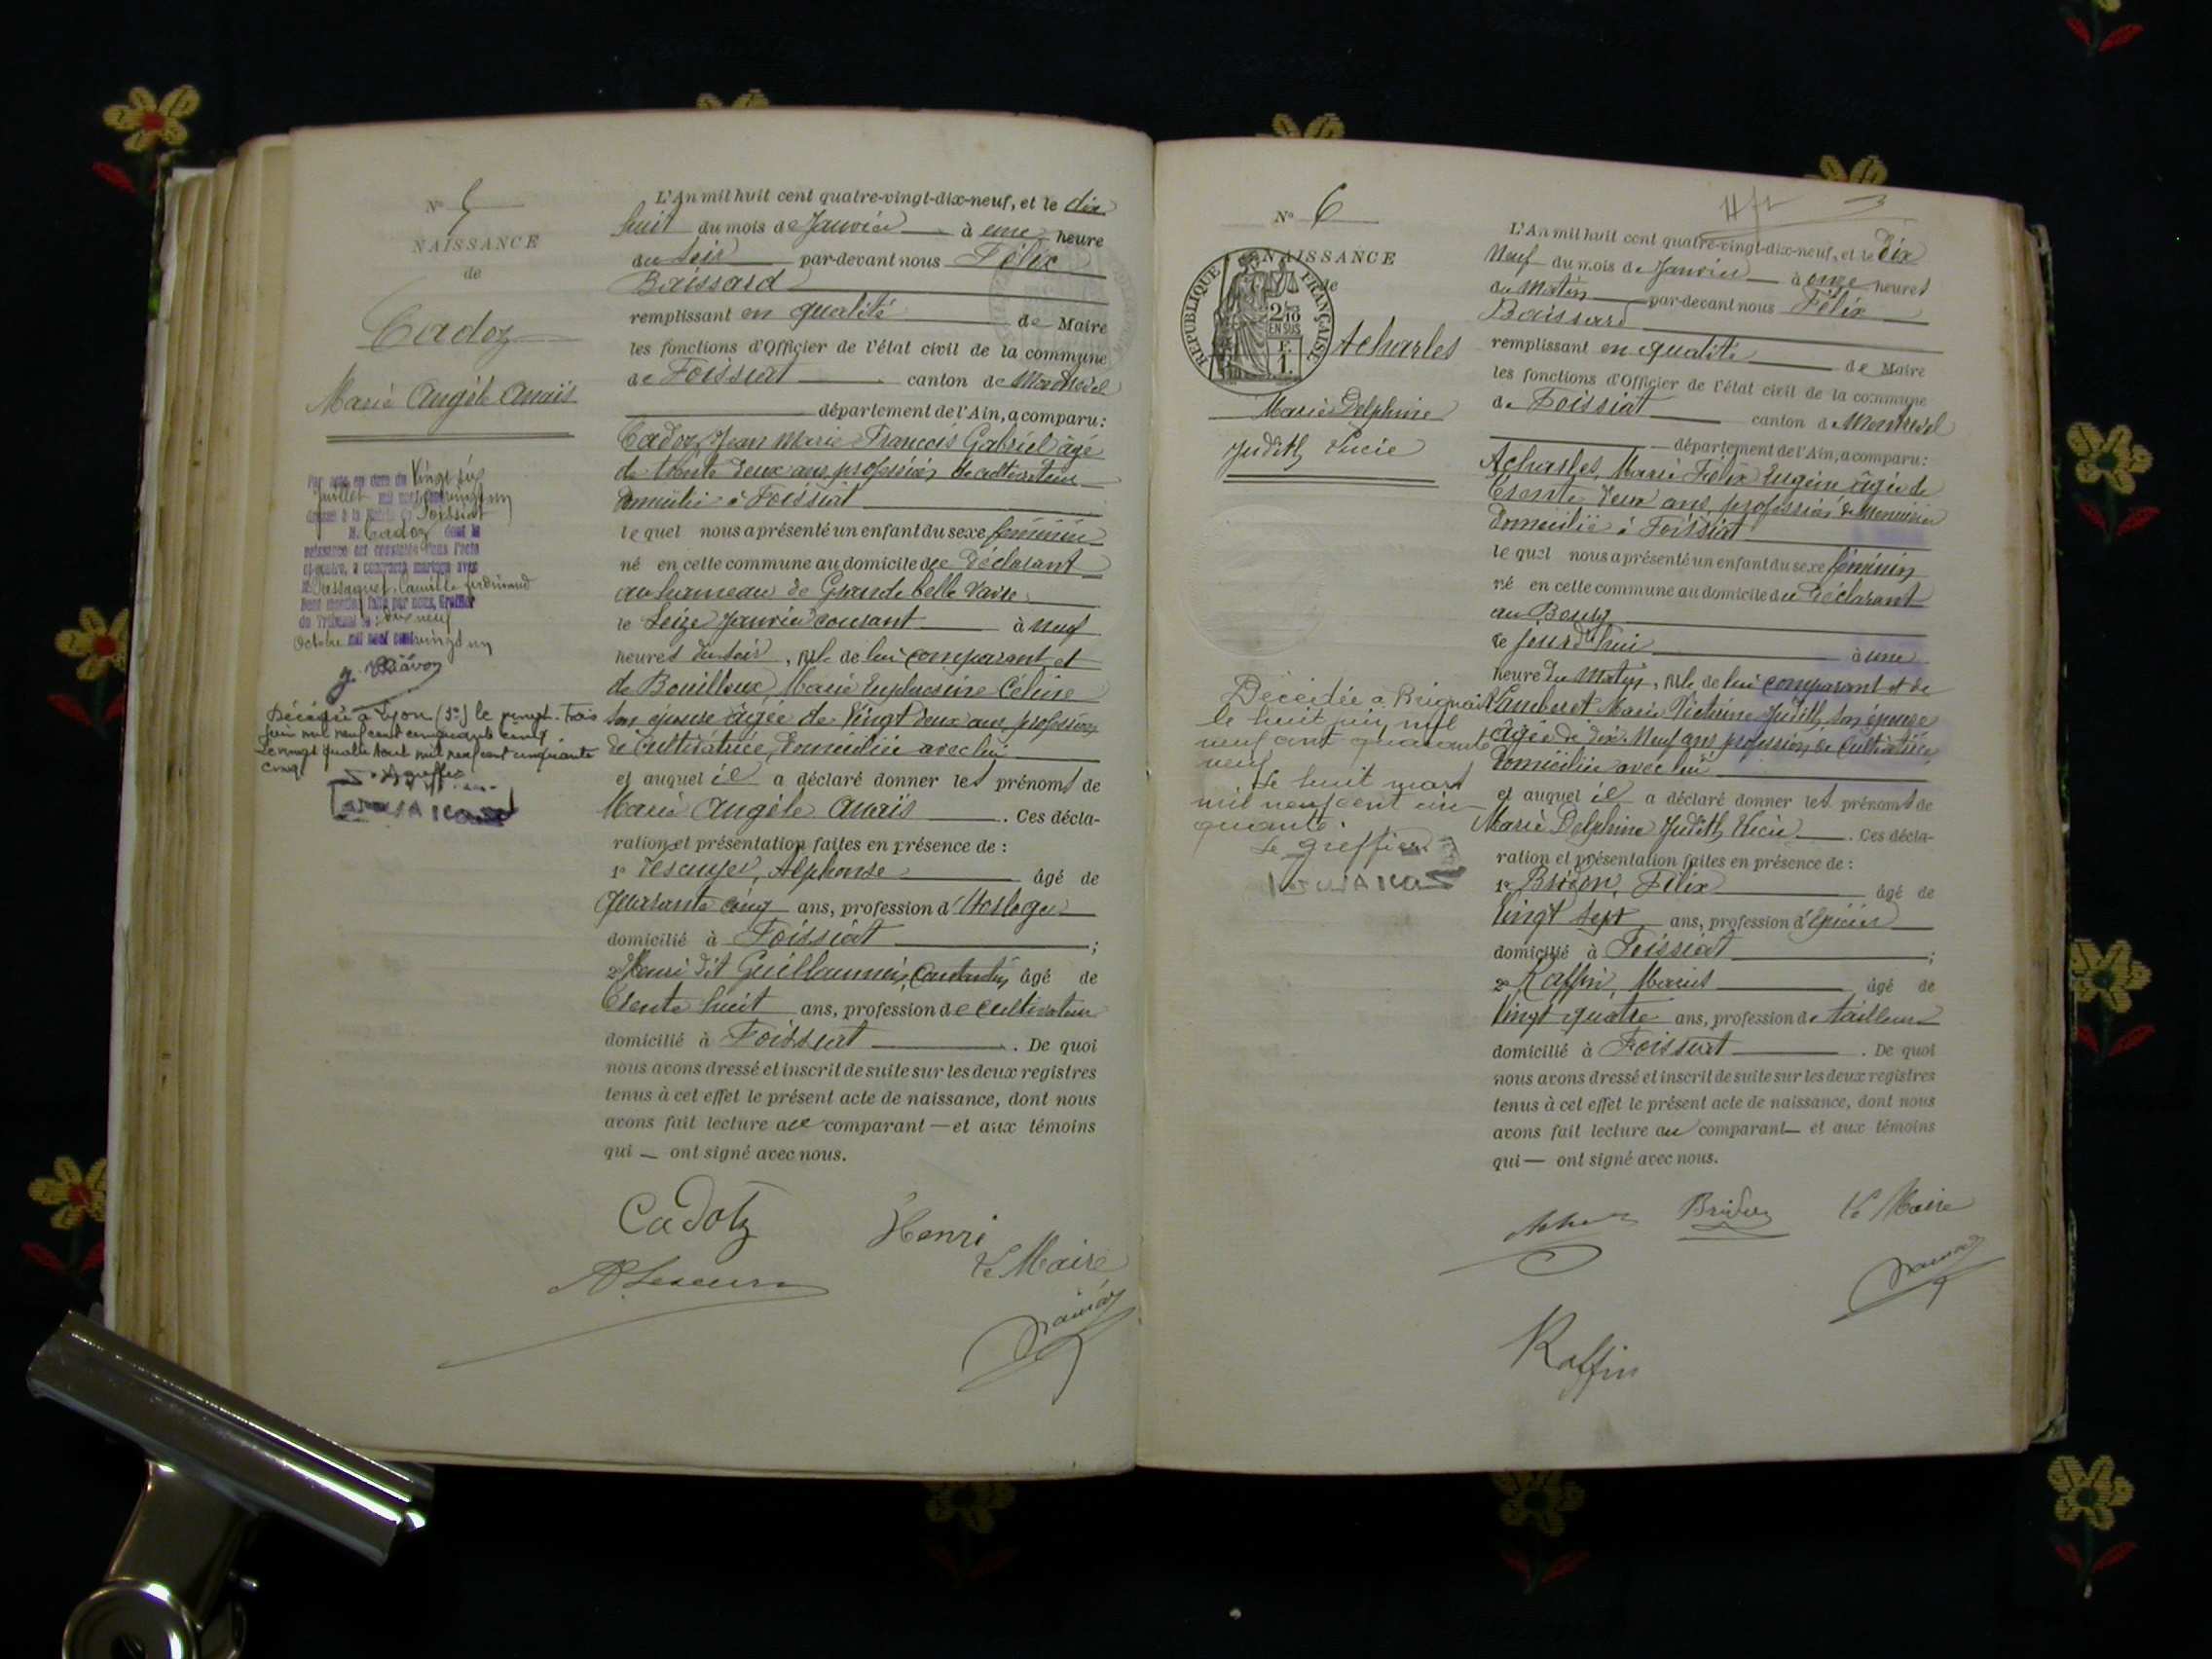 N° 5
NAISSANCE
de
Cadoz
Marie Angèle Anaïs
Par acte en date du Vingt six
Juillet mil neuf cent vingt un
dressé à la Mairie de Foissiat
M. Cadoz dont la
naissance est constatée dans l'acte
ci-contre, a contracté mariage avec
M. Camille Ferdinand
Dont mention faite par nous, Greffier
du Tribunal le dix neuf
Octobre mil neuf cent vingt un
Décédée à Lyon (3e) le vingt-trois
juin mil neuf cent cinquante cinq
Le vingt quatre août mil neuf cent cinquante
cinq
Le greffier
L'An mil huit cent quatre-vingt-dix-neuf, et le dix
huit du mois de Janvier à une heure
du soir par-devant nous Félix
Baissard
remplissant en qualité de Maire
les fonctions d'Officier de l'état civil de la commune
de Foissiat canton de Montrevel
département de l'Ain, a comparu:
Cadoz, Jean Marie François Gabriel âgé
de trente deux ans, profession de cultivateur
domicilié à Foissiat
lequel nous a présenté un enfant du sexe féminin
né en cette commune au domicile du Déclarant
au hameau de Grande belle
le Seize Janvier courant à neuf
heures du soir, né de lui comparant et
de Bouilloux, Marie Euphrosine Céline
son épouse âgée de Vingt deux ans profession
de cultivatrice, domiciliée avec lui
et auquel il a déclaré donner les prénoms de
Marie Angèle Anaïs. Ces décla-
ration et présentation faites en présence de :
1° Lescuyer, Alphonse âgé de
Quarante cinq ans, profession d'Horloger
domicilié à Foissiat ;
2° Henri dit Guillaumin, Constantin, âgé de
Trente huit ans, profession de cultivateur
domicilié à Foissiat. De quoi
nous avons dressé et inscrit de suite sur les deux registres
tenus à cet effet le présent acte de naissance, dont nous
avons fait lecture au comparant — et aux témoins
qui — ont signé avec nous.
Cadotz Henri
Le Maire
N° 6
NAISSANCE
de
REPUBLIQUE FRANÇAISE
2/10
EN SUS
F.
1.
Acharles
Marie Delphine
Judith Lucie
Décédée à
le huit juin mil
neuf cent quarante
neuf
Le huit mars
mil neuf cent cin-
quante.
Le greffier
3
L'An mil huit cent quatre-vingt-dix-neuf, et le Dix
Neuf du mois de Janvier à onze heures
du Matin par-devant nous Félix
Baissard
remplissant en qualité de Maire
les fonctions d'Officier de l'état civil de la commune
de Foissiat canton de Montrevel
département de l'Ain, a comparu:
Acharles, Marie Félix Eugène âgé de
Trente deux ans, profession de Menuisier
domicilié à Foissiat
lequel nous a présenté un enfant du sexe féminin
né en cette commune au domicile du Déclarant
au Bourg
le jourd'hui à une
heure du Matin, né de lui comparant et de
Vauberet Marie Victorine Judith, son épouse
âgée de dix-Neuf ans profession de Cultivatrice,
domiciliée avec lui
et auquel il a déclaré donner les prénoms de
Marie Delphine Judith Lucie. Ces décla-
ration et présentation faites en présence de :
1° Bridon, Félix âgé de
Vingt sept ans, profession d'épicier
domicilié à Foissiat ;
2° Raffin, Marius âgé de
Vingt quatre ans, profession de tailleur
domicilié à Foissiat. De quoi
nous avons dressé et inscrit de suite sur les deux registres
tenus à cet effet le présent acte de naissance, dont nous
avons fait lecture au comparant — et aux témoins
qui — ont signé avec nous.
Bridon Le Maire
Raffin